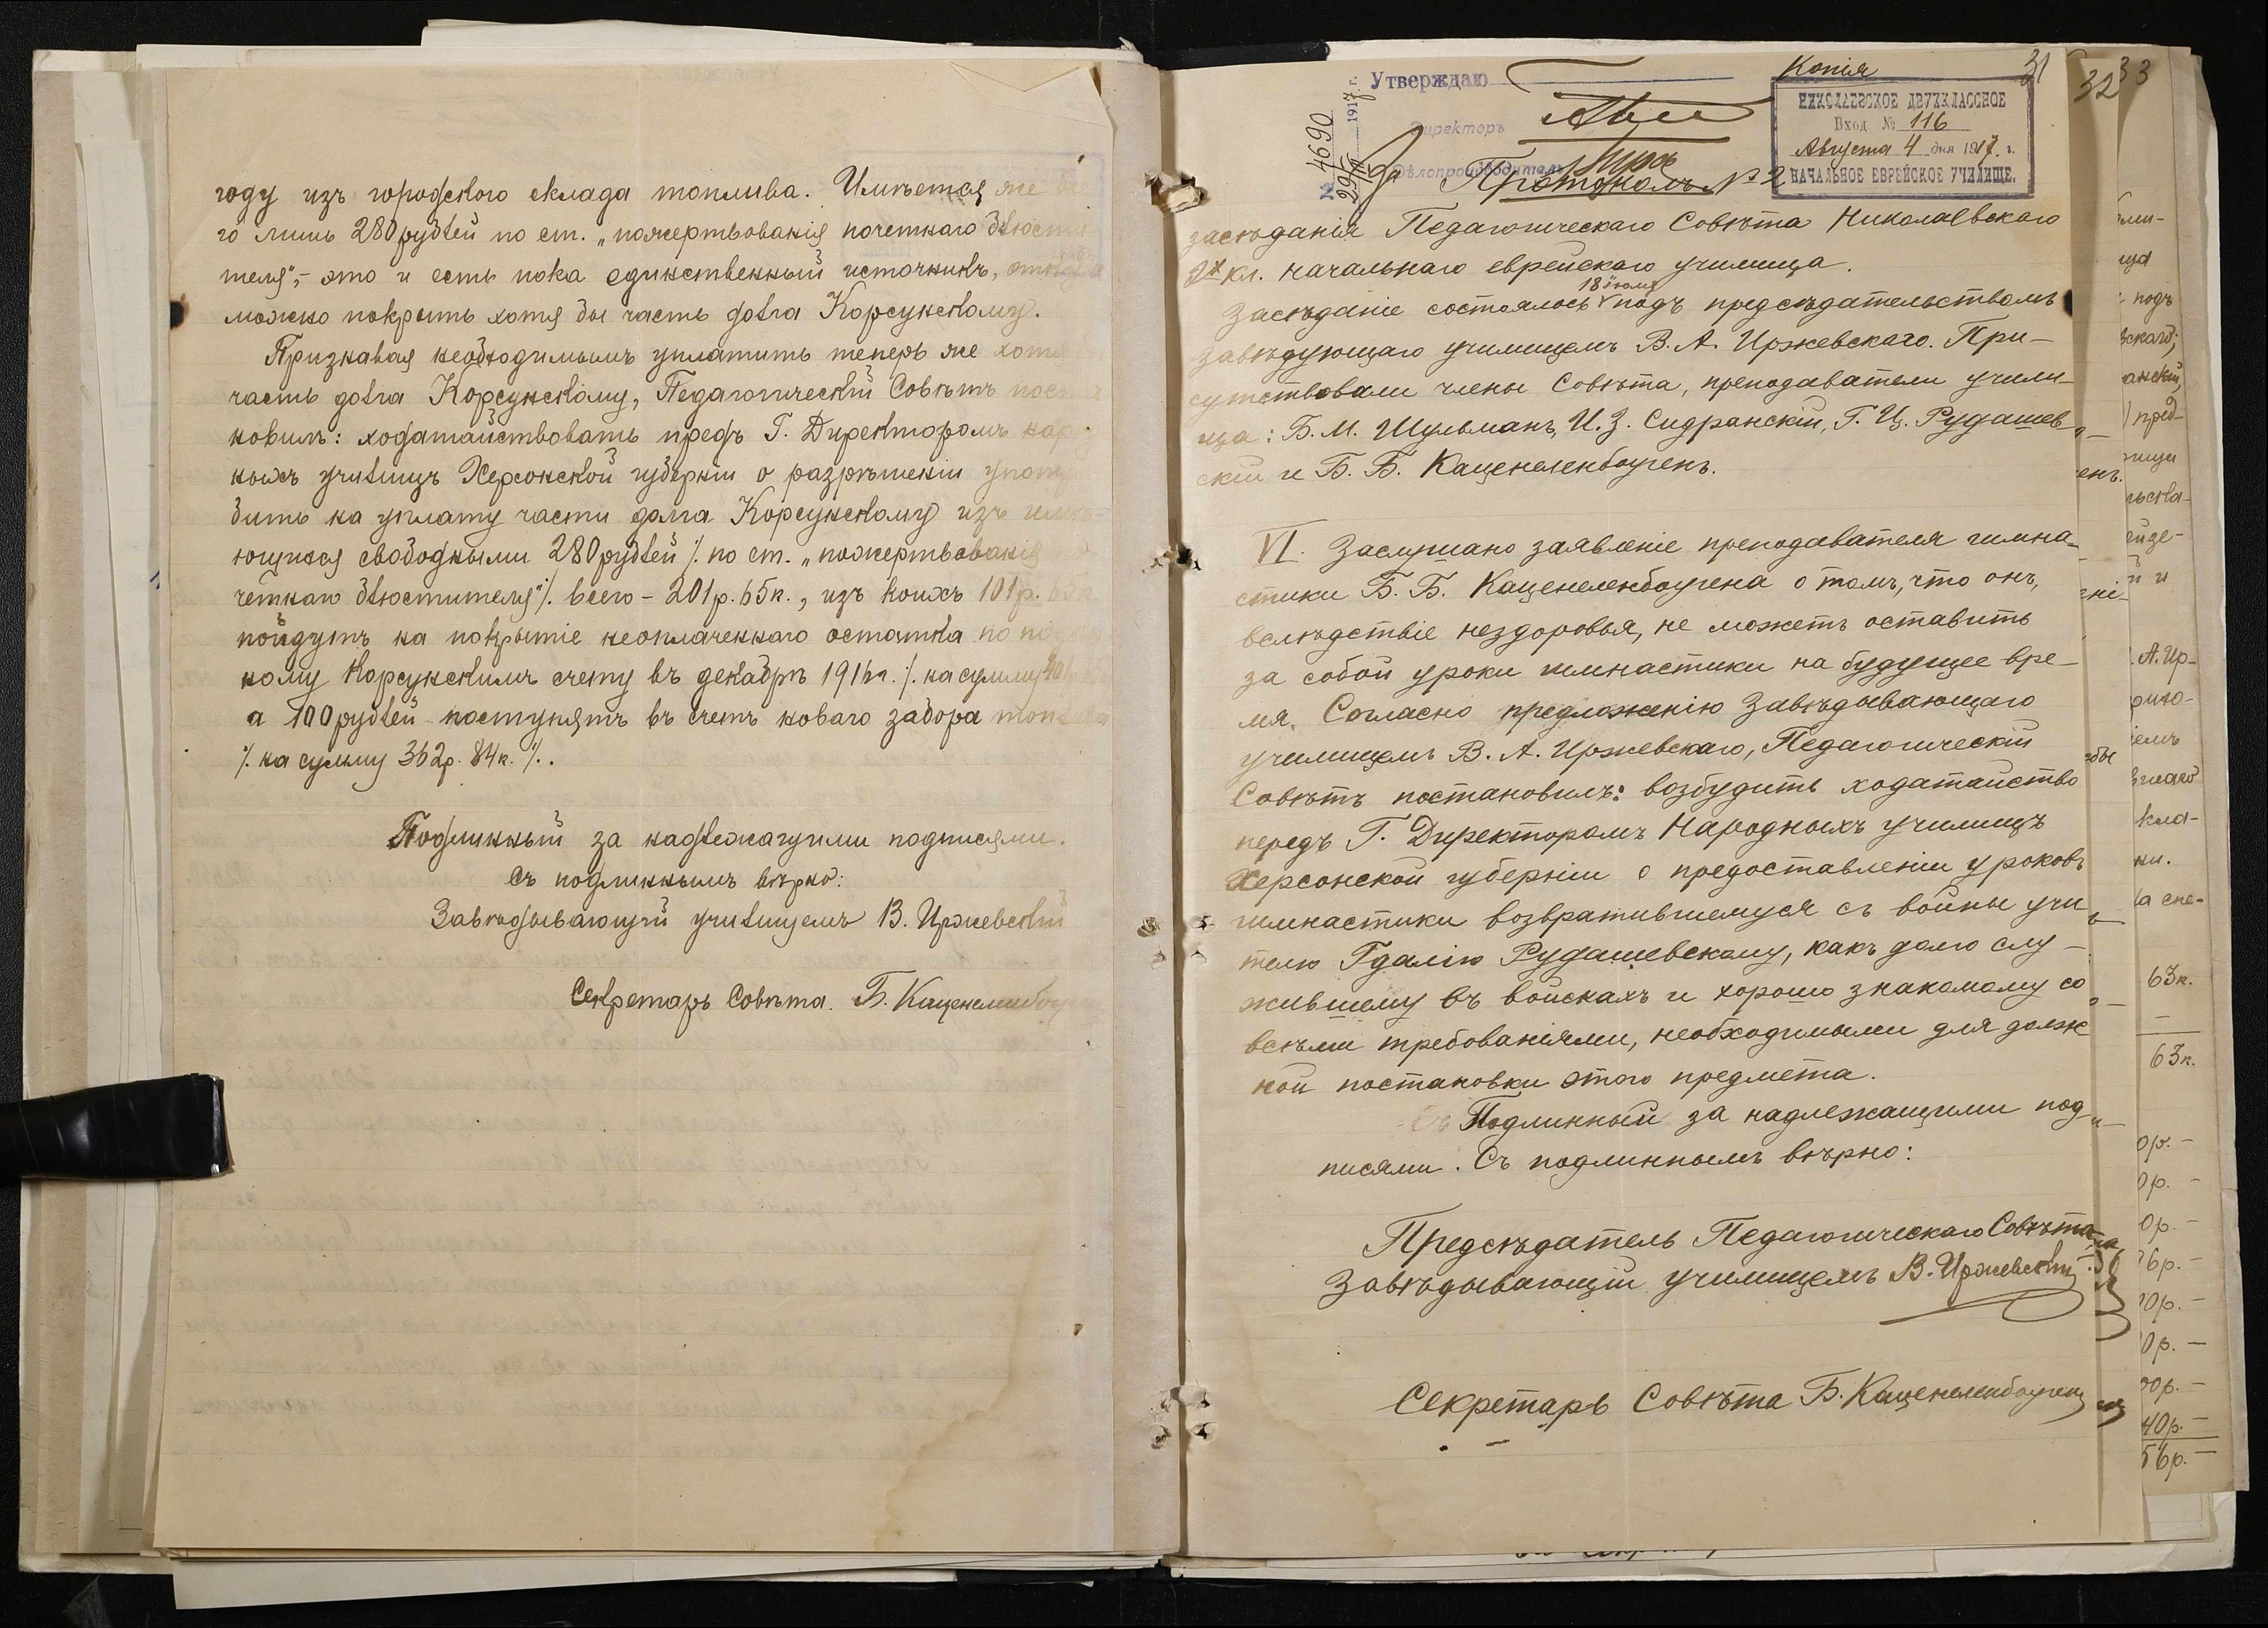 году изъ городского склада топлива. Имѣется же
го лишь 280 рублей по ст. „пожертвованія почетнаго блюсти
теля", – это и есть пока единственный источникъ, откуда
можно покрыть хотя бы часть долга Корсунскому.
Признавая необходимымъ уплатить теперь же хотя
часть долга Корсунскому, Педагогическій Совѣтъ поста
новилъ: ходатайствовать предъ Г. Директоромъ нар
ныхъ училищъ Херсонской губерніи о разрѣшеніи упот
бить на уплату части долга Корсунскому изъ имѣ-
ющихся свободными 280 рублей ./. по ст. „пожертвованія
четнаго блюстителя" ./. всего – 201 р. 65 к., изъ коихъ 101 р. 65 к.
пойдутъ на покрытіе неоплаченнаго остатка по
ному Корсунскимъ счету въ декабрѣ 1916 г. ./. на сумму
а 100 рублей поступятъ въ счетъ новаго забора топлива
./. на сумму 362 р. 84 к. ./.
Подлинный за надлежащими подписями.
Съ подлиннымъ вѣрно:
Завѣдывающій училищемъ В. Иржевскій
Секретарь Совѣта. Б. Каценеленбоген
Копія
31
Утверждаю
Директоръ
Дѣлопроизводитель
№ 4690
1917 г.
НИКОЛАЕВСКОЕ ДВУХКЛАССНОЕ
Вход № 116
Августа 4 дня 1917 г.
НАЧАЛЬНОЕ ЕВРЕЙСКОЕ УЧИЛИЩЕ.
Протоколъ № 2
засѣданія Педагогическаго Совѣта Николаевскаго
2х кл. начальнаго еврейскаго училища.
18 іюля
Засѣданіе состоялось подъ предсѣдательствомъ
завѣдующаго училищемъ В. А. Иржевскаго. При-
сутствовали члены Совѣта, преподаватели учили-
ща: Б. М. Шульманъ, И. З. Сидранскій, Г. Ц. Рудашев-
скій и Б. Б. Каценеленбогенъ.
VI. Заслушано заявленіе преподавателя гимна-
стики Б. Б. Каценеленбогена о томъ, что онъ,
вслѣдствіе нездоровья, не можетъ оставить
за собой уроки гимнастики на будущее вре-
мя. Согласно предложенію Завѣдывающаго
училищемъ В. А. Иржевскаго, Педагогическій
Совѣтъ постановилъ: возбудить ходатайство
передъ Г. Директоромъ Народныхъ училищъ
Херсонской губерніи о предоставленіи уроковъ
гимнастики возвратившемуся съ войны учи
телю Гдалію Рудашевскому, какъ долго слу-
жившему въ войскахъ и хорошо знакомому со
всѣми требованіями, необходимыми для долж
ной постановки этого предмета.
Подлинный за надлежащими под
писями. Съ подлиннымъ вѣрно:
Предсѣдатель Педагогическаго Совѣта
Завѣдывающій училищемъ В. Иржевскій
Секретарь Совѣта Б. Каценеленбоген
32
33
енъ.
подъ
вскаго;
анскій,
пред-
А. Ир-
кла-
63 к.
63 к.
0 р. –
0 р. –
0 р. –
6 р. –
0 р. –
0 р. –
00 р. –
40 р. –
56 р. –